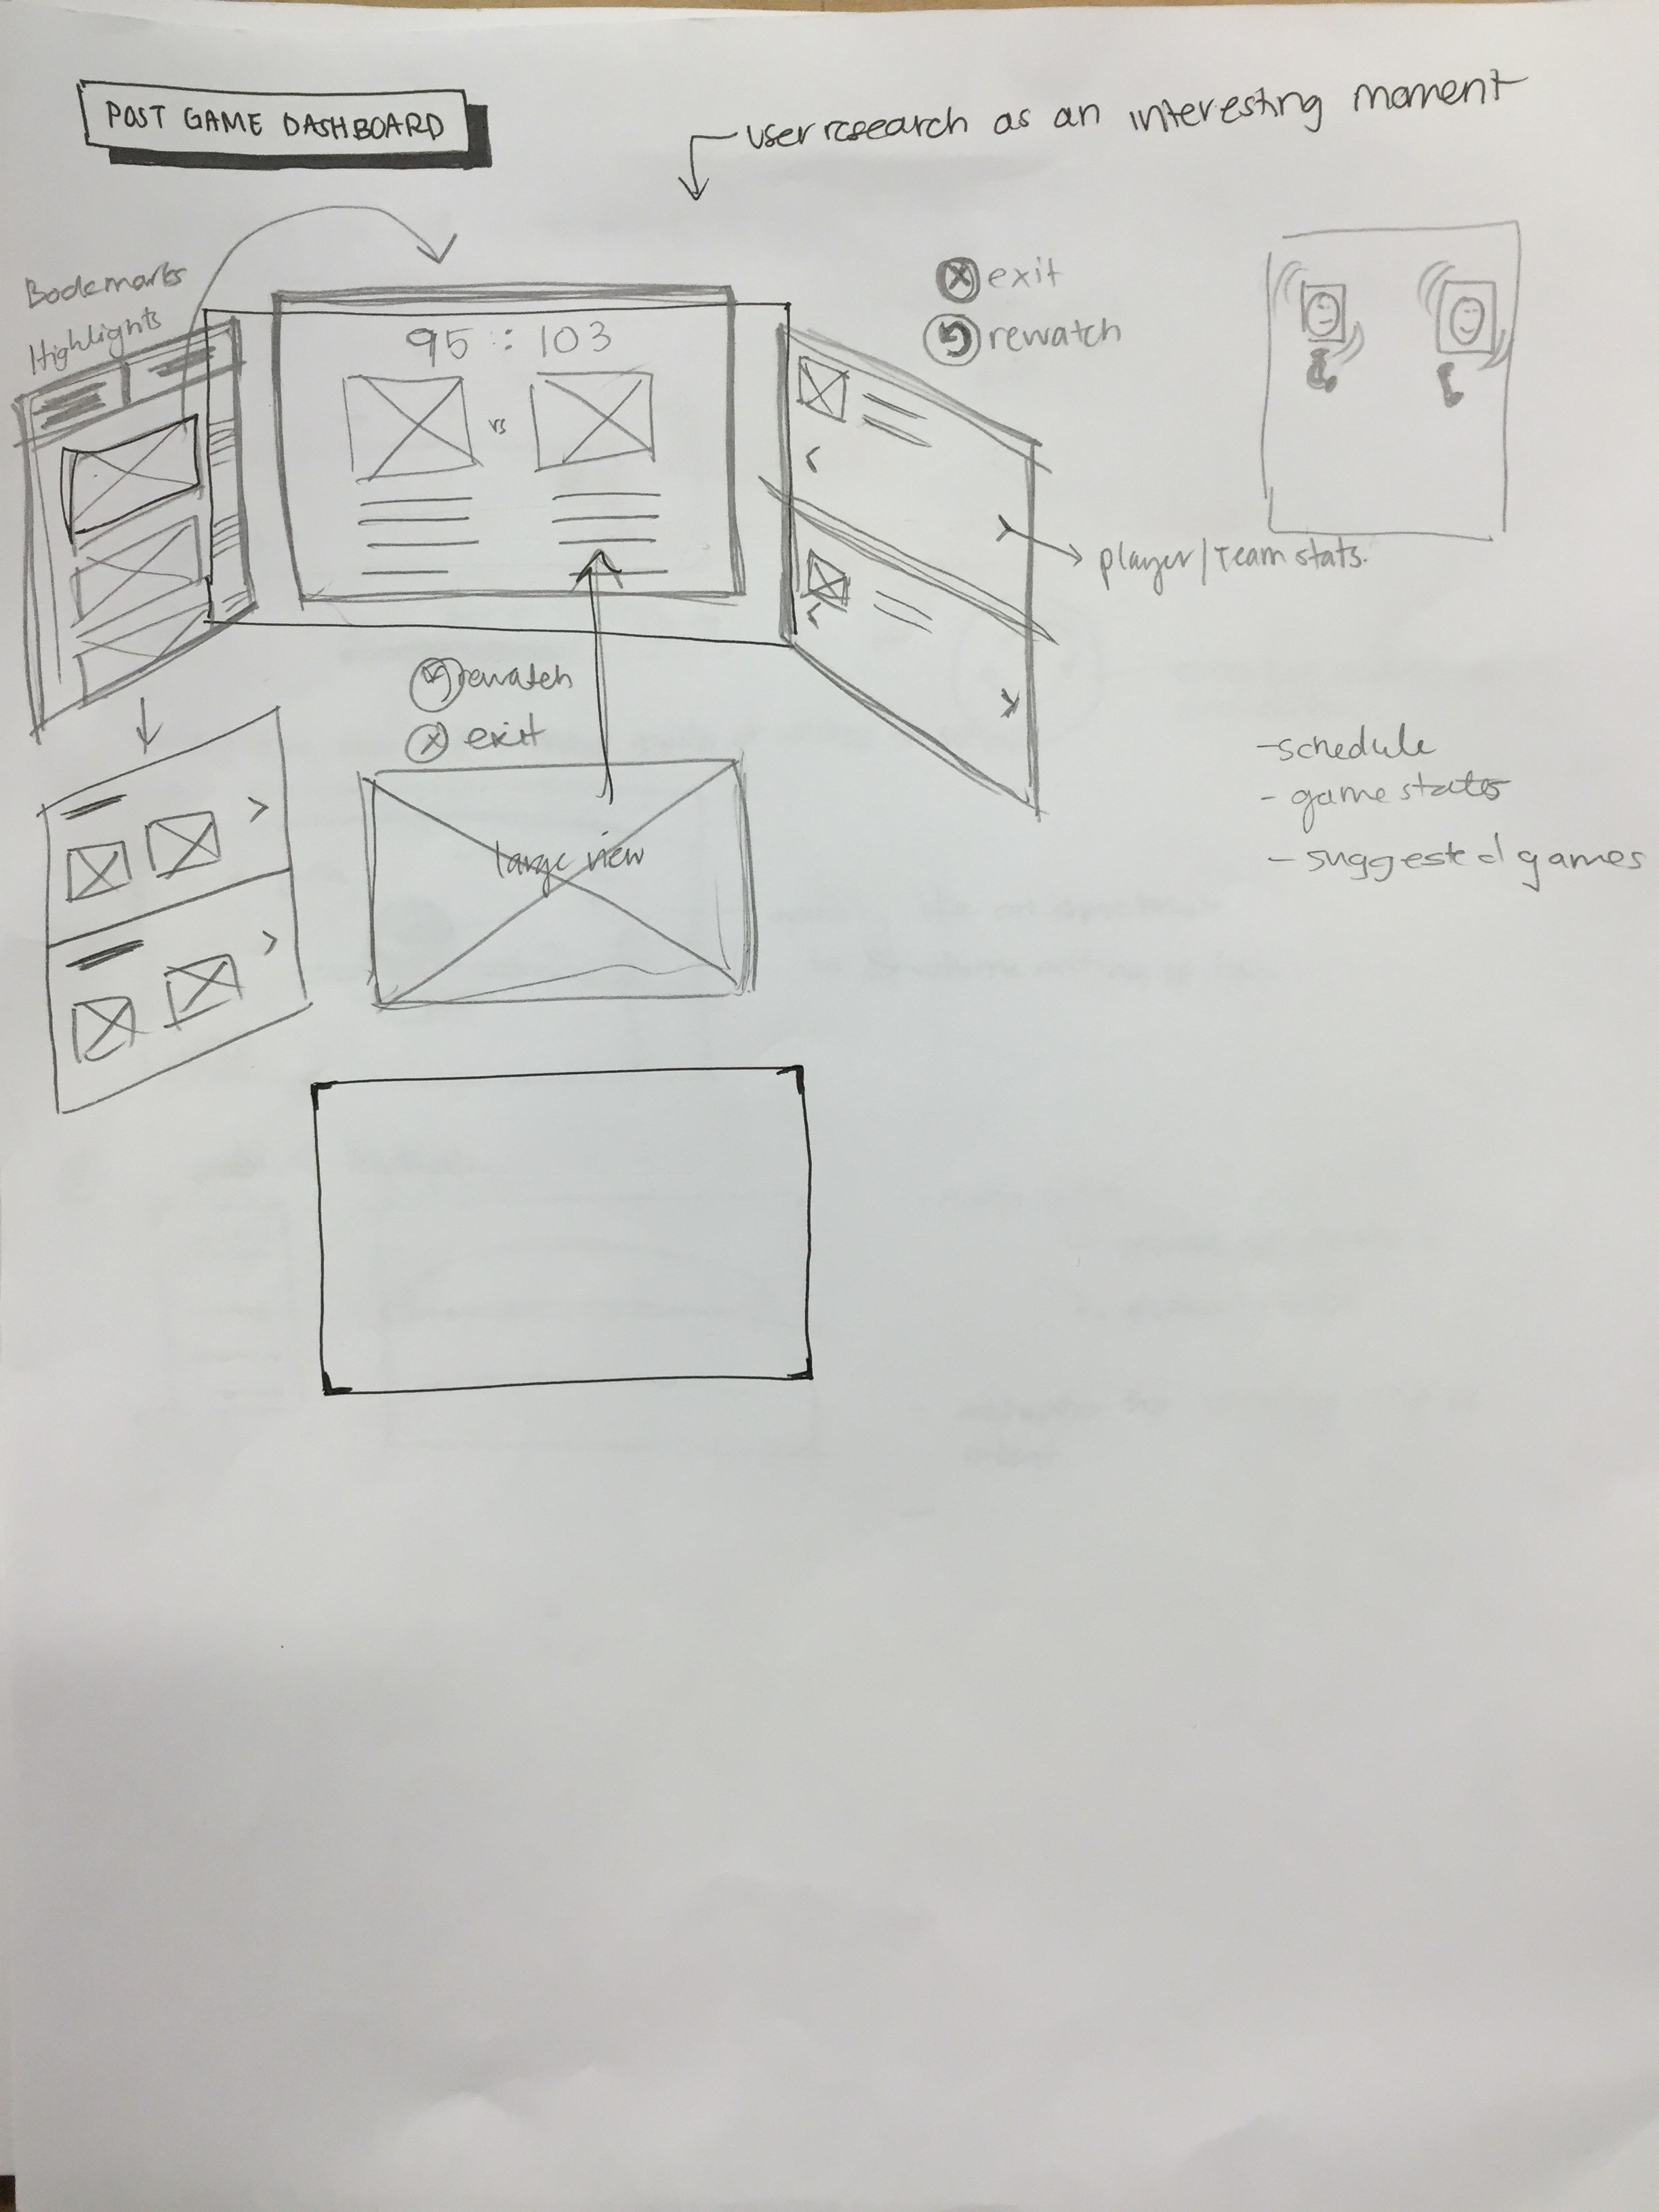 POST GAME DASHBOARD
user research as an interesting moment
Bookmarks
Highlights
exit
rewatch
95 : 103
vs
player/Team stats.
rewatch
exit
large view
-schedule
- game stats
- suggested games